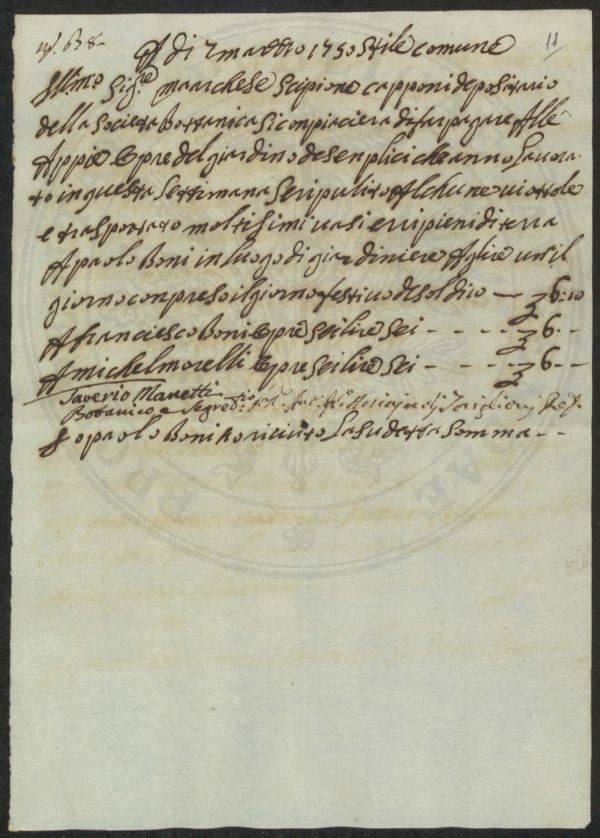 N. 638 11
A di 7 marzzo 1750 stile comune
Ill.mo Sig.re marchese Scipione capponi depositario
della Societa Bottanica si conpiaciera di far pagare Alle
Appie opre del giardino de senplici che anno Lavora
to in questa Settemana Se ripulito Alchune viottole
e trasportato moltisimi vasi e ripieni di terra
A paolo Boni in Luogo di giardiniere A lire un il
giorno conpreso il giorno festivo di soldi 10 — £ 6:10
A franciesco Boni opre sei lire sei - - - - - £ 6 - -
A michel morelli opre sei lire sei - - - - £ 6 - -
Saverio Manetti
Botanico e Segret.rio
Io paolo Boni ho riciuto La sudetta Somma - -